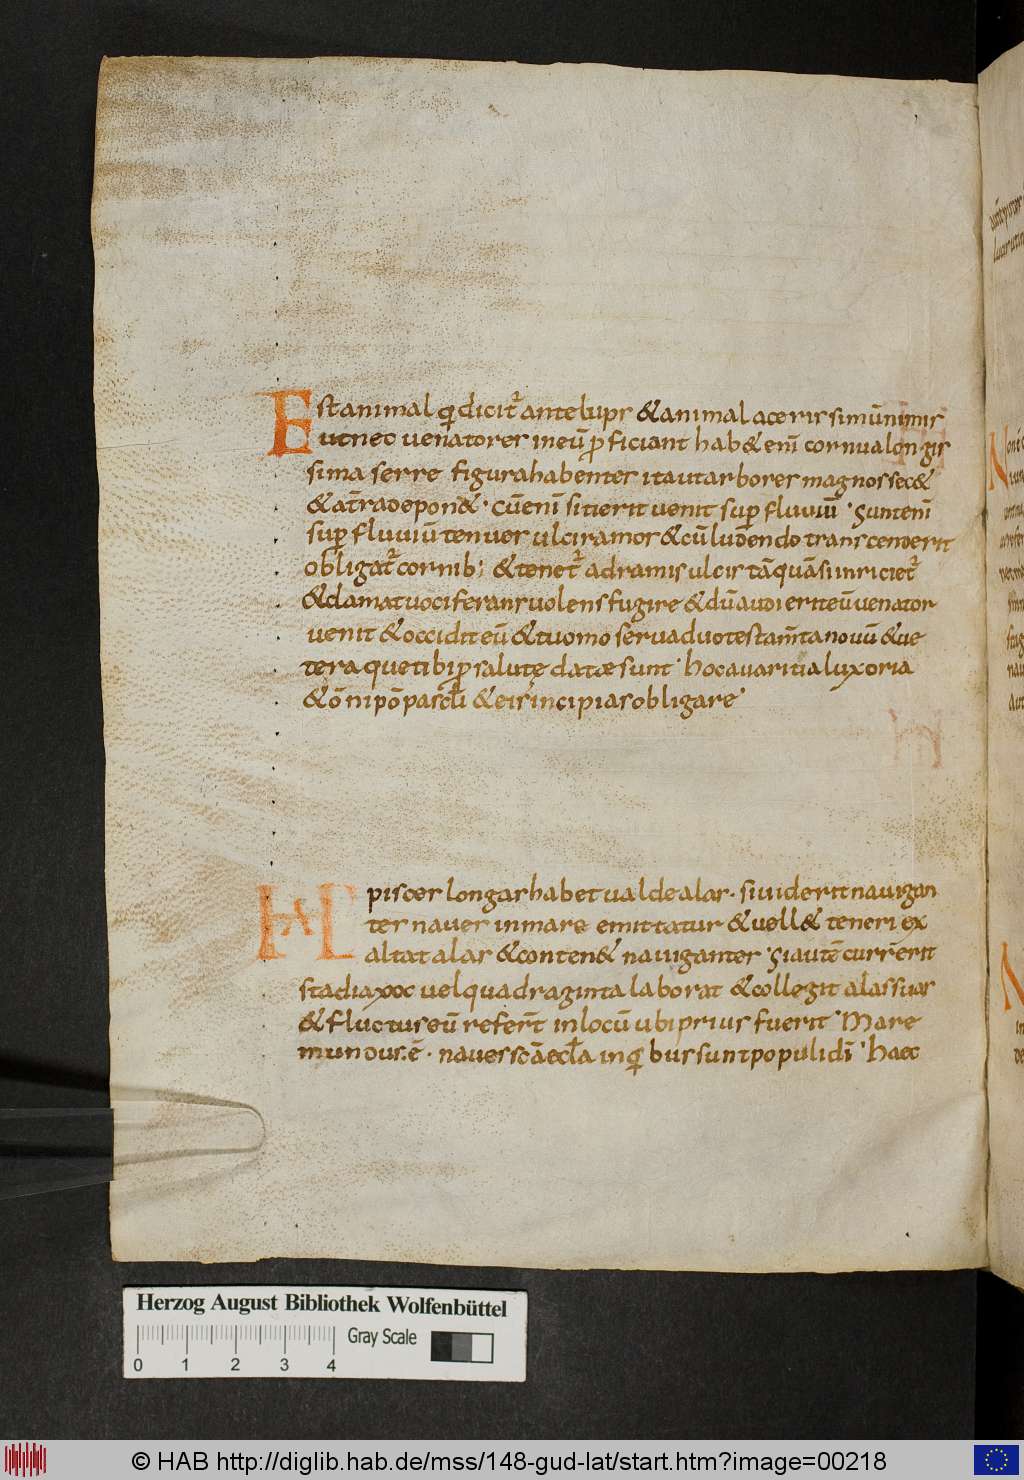 Est animal qui dicit̄ antelups & animal aceris simū nimis
ut nec venatores in eū p̄ficiant hab& enī cornua longis
sima serre figura habentes ita ut arbores magnos sec&
& at̄ra depon&· cū enī sitierit venit sup fluviū· Sunt enī
sup fluviū tenues ulcis ramos & cū ludendo transcenderit
obligat̄ cornib; & tenet̄ a dramis ulcis tāquā si
& clamat vociferans volens fugire & dū audierit eū venator
venit & occidit eū & tu omo serva duo testam̄ta novū & ve
tera que tibi p salute datæ sunt· hoc avaritia luxoria
& ōnipō & eis incipias obligare·
pisces longas habet valde alas· si viderit navigan
tes naves in mare emittatur & vell& teneri ex
altat alas & conten& navigantes· Si autē currerit
stadia xxx vel quadraginta laborat & collegit alas suas
& fluctus eū referт̄ in locū ubi prius fuerit· Mare
mundus· ē· naves sc̄a eccl̄a in qui bus sunt populi dī· haec
Herzog August Bibliothek Wolfenbüttel
Gray Scale
0 1 2 3 4
© HAB http://diglib.hab.de/mss/148-gud-lat/start.htm?image=00218